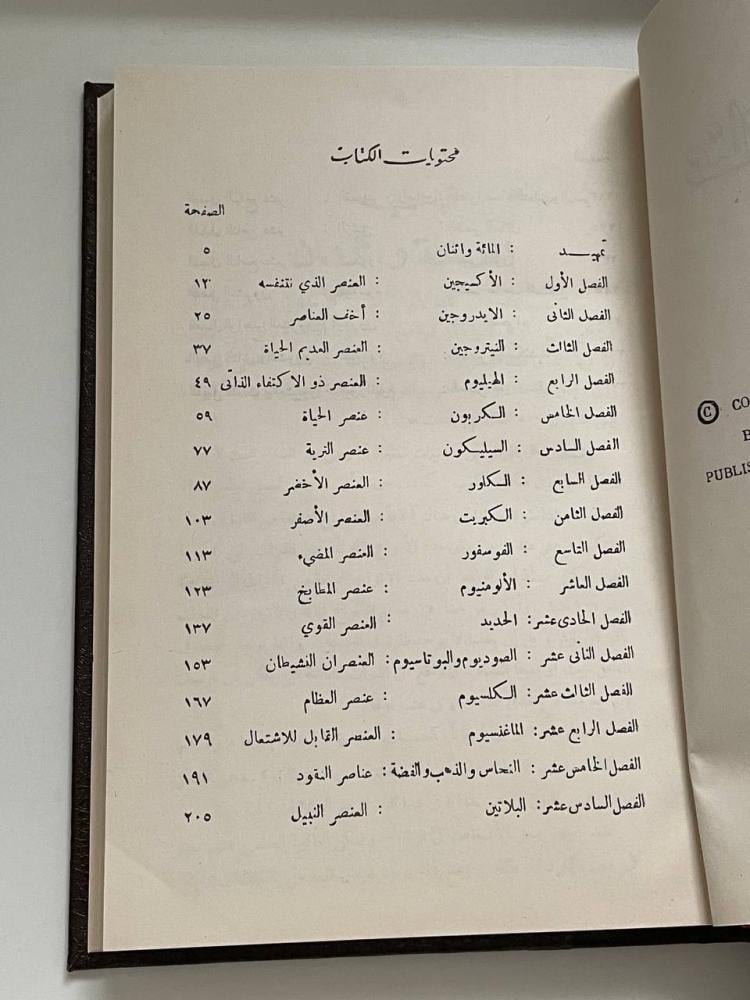 محتويات الكتاب
الصفحة
تمهيد : المائة واثنان ٥
الفصل الأول : الأكسيجين : العنصر الذي نتنفسه ١٢
الفصل الثانى : الايدروجين : أخف العناصر ٢٥
الفصل الثالث : النيتروجين : العنصر العديم الحياة ٣٧
الفصل الرابع : الهيليوم : العنصر ذو الاكتفاء الذاتى ٤٩
الفصل الخامس : الكربون : عنصر الحياة ٥٩
الفصل السادس : السيليكون : عنصر التربة ٧٧
الفصل السابع : الكلور : العنصر الأخضر ٨٧
الفصل الثامن : الكبريت : العنصر الأصفر ١٠٣
الفصل التاسع : الفوسفور : العنصر المضيء ١١٣
الفصل العاشر : الألومنيوم : عنصر المطابخ ١٢٣
الفصل الحادى عشر : الحديد : العنصر القوي ١٣٧
الفصل الثانى عشر : الصوديوم والبوتاسيوم : العنصران النشيطان ١٥٣
الفصل الثالث عشر : الكلسيوم : عنصر العظام ١٦٧
الفصل الرابع عشر : الماغنسيوم : العنصر القابل للاشتعال ١٧٩
الفصل الخامس عشر : النحاس والذهب والفضة : عناصر النقود ١٩١
الفصل السادس عشر : البلاتين : العنصر النبيل ٢٠٥
© CO
B
PUBLIS